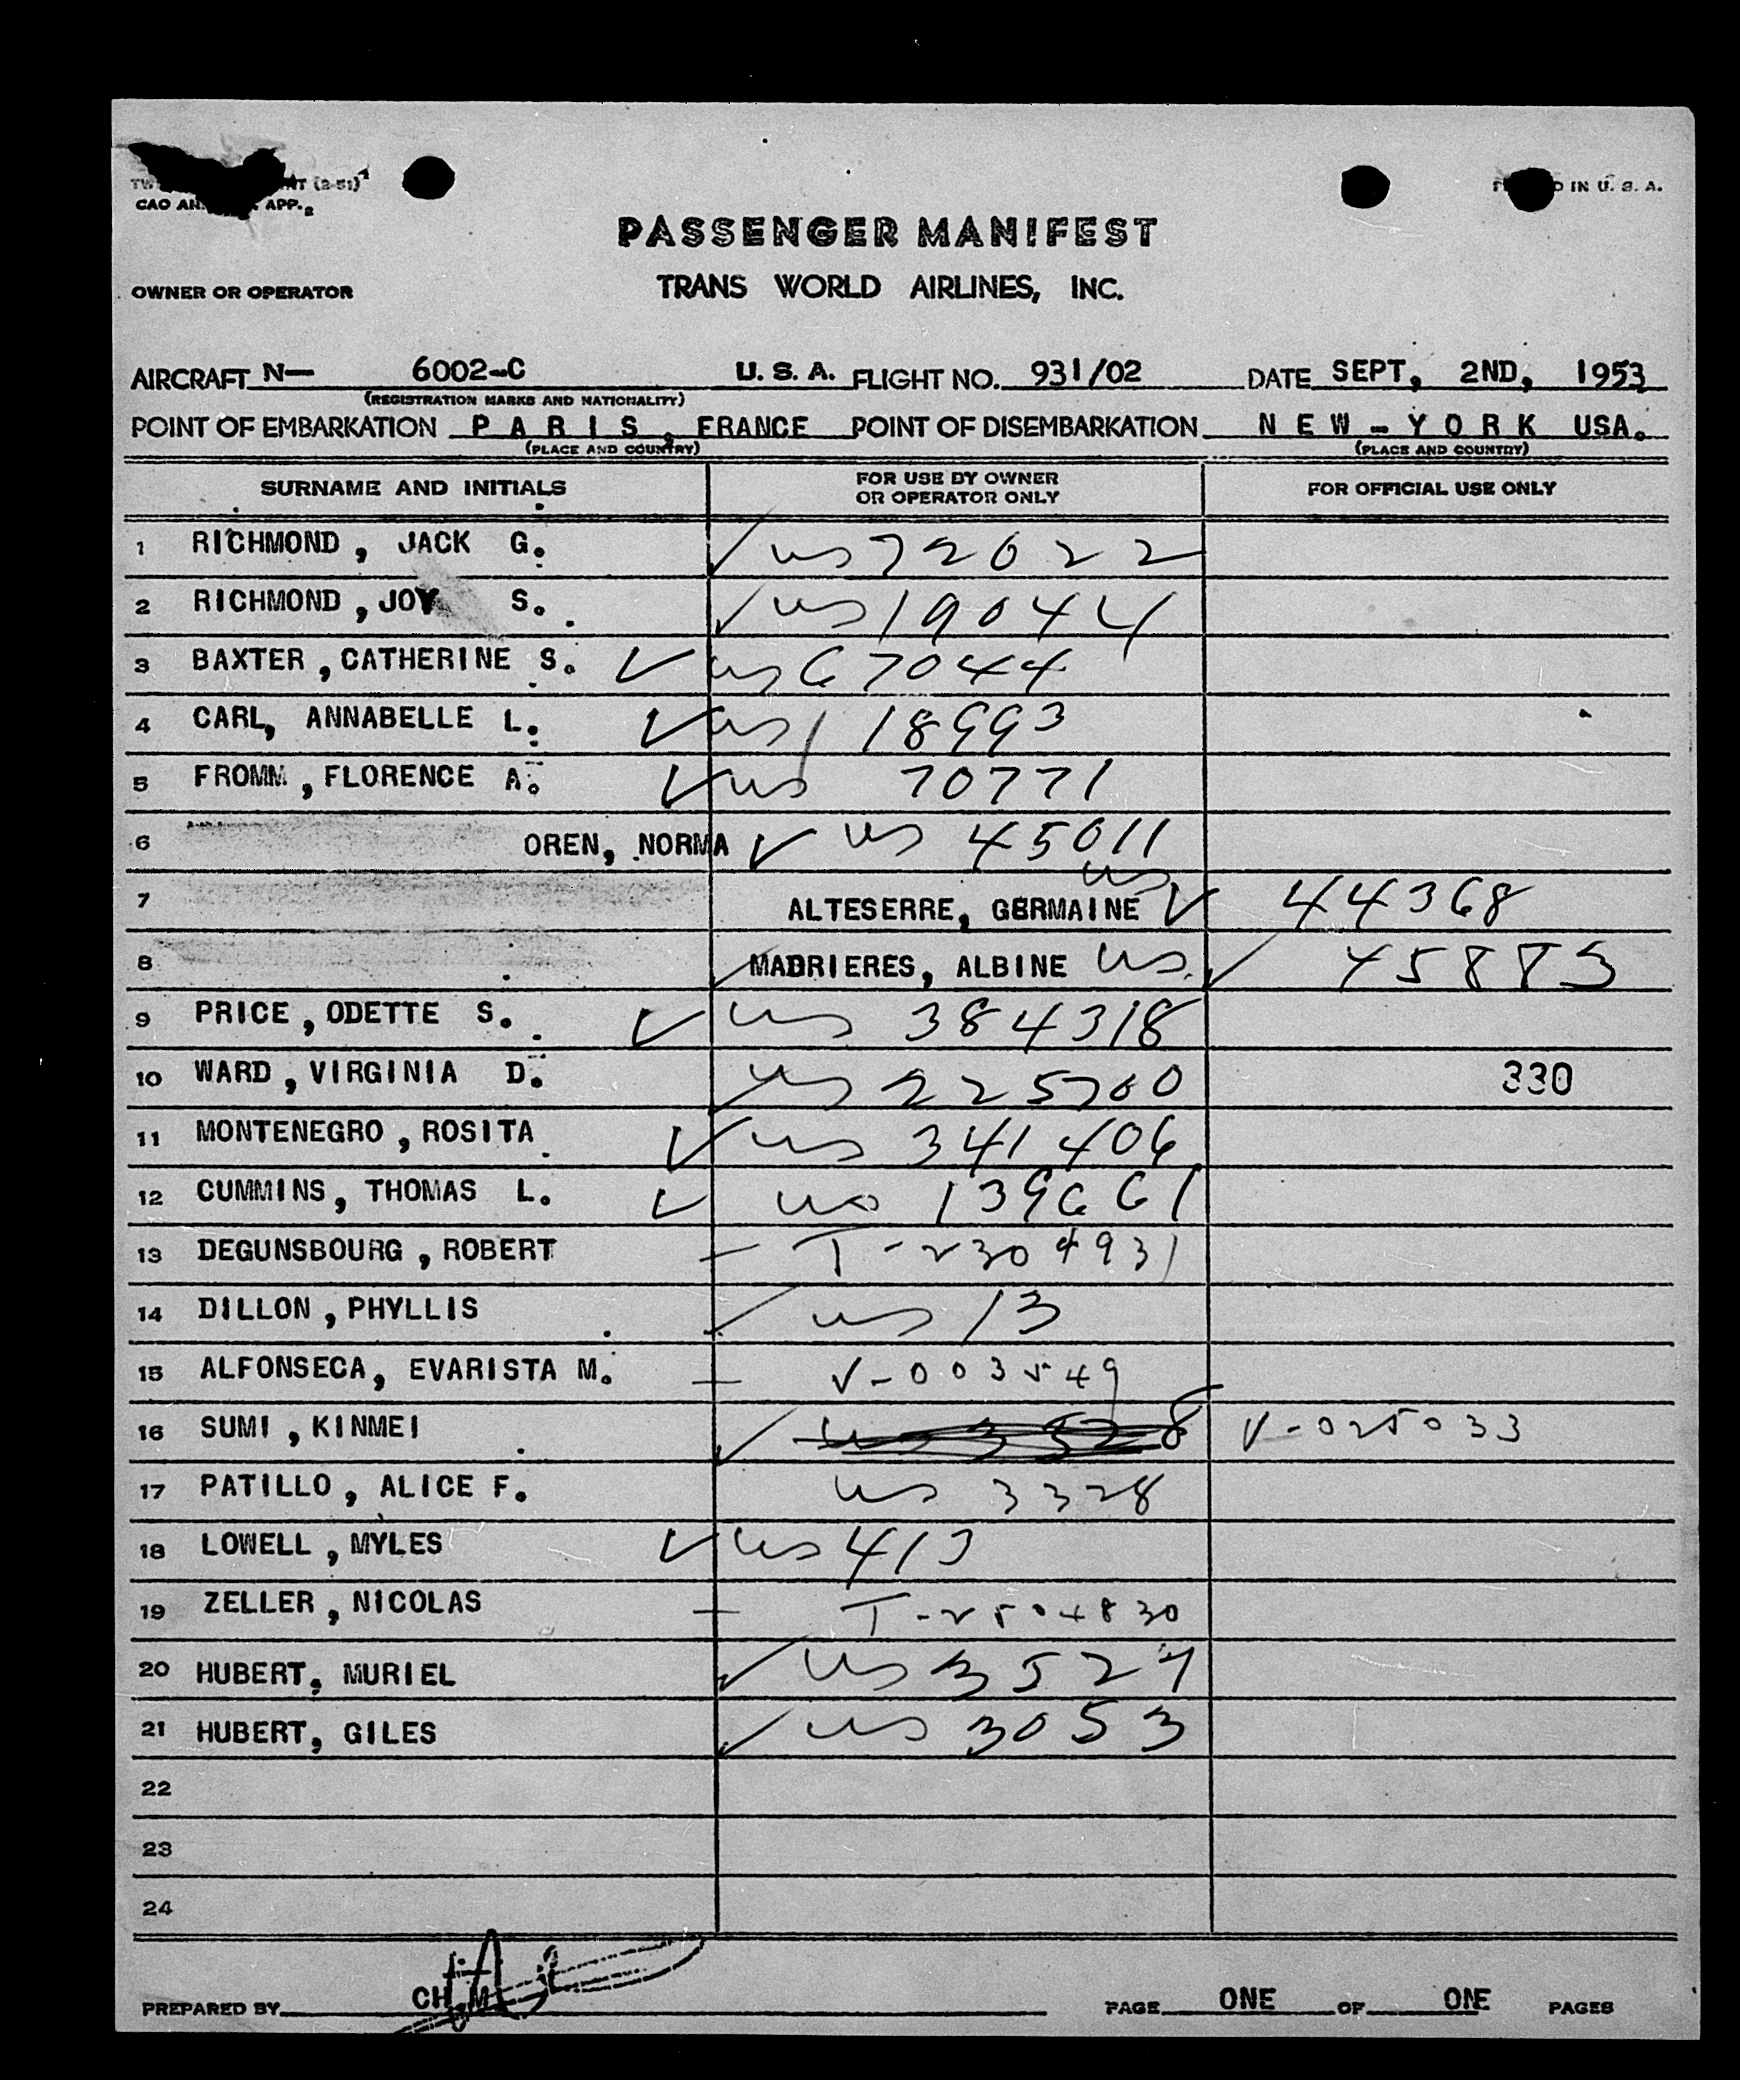 (2-51)
CAO APP.
IN U. S. A.
PASSENGER MANIFEST
OWNER OR OPERATOR TRANS WORLD AIRLINES, INC.
AIRCRAFT N— 6002-C U. S. A. FLIGHT NO. 931/02 DATE SEPT, 2ND, 1953
(REGISTRATION MARKS AND NATIONALITY)
POINT OF EMBARKATION P A R I S , FRANCE POINT OF DISEMBARKATION N E W - Y O R K USA.
(PLACE AND COUNTRY) (PLACE AND COUNTRY)
SURNAME AND INITIALS FOR USE BY OWNER OR OPERATOR ONLY FOR OFFICIAL USE ONLY
1 RICHMOND, JACK G. ✓ us 72022
2 RICHMOND, JOY S. ✓ us 19044
3 BAXTER, CATHERINE S. ✓ us 67044
4 CARL, ANNABELLE L. ✓ us 118993
5 FROMM, FLORENCE A. ✓ us 70771
6 OREN, NORMA ✓ us 45011
7 ALTESERRE, GERMAINE us ✓ 44368
8 MADRIERES, ALBINE us ✓ 45885
9 PRICE, ODETTE S. ✓ us 384318
10 WARD, VIRGINIA D. ✓ us 225700 330
11 MONTENEGRO, ROSITA ✓ us 341406
12 CUMMINS, THOMAS L. ✓ us 139661
13 DEGUNSBOURG, ROBERT — T-2304931
14 DILLON, PHYLLIS ✓ us 13
15 ALFONSECA, EVARISTA M. — V-003549
16 SUMI, KINMEI ✓ us 3528 V-025033
17 PATILLO, ALICE F. us 3328
18 LOWELL, MYLES ✓ us 413
19 ZELLER, NICOLAS — T-2504830
20 HUBERT, MURIEL ✓ us 3527
21 HUBERT, GILES ✓ us 3053
22
23
24
PREPARED BY CH.M PAGE ONE OF ONE PAGES